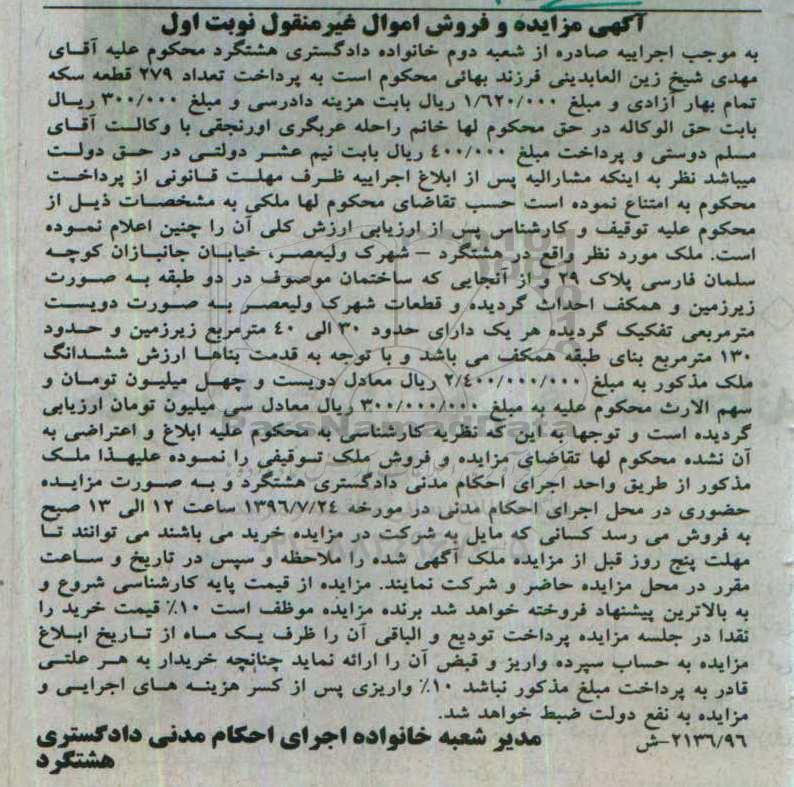 آگهی مزایده و فروش اموال غیرمنقول نوبت اول
به موجب اجراییه صادره از شعبه دوم خانواده دادگستری هشتگرد محکوم علیه آقای
مهدی شیخ زین العابدینی فرزند بهائی محکوم است به پرداخت تعداد ۲۷۹ قطعه سکه
تمام بهار آزادی و مبلغ ۱/۶۲۰/۰۰۰ ریال بابت هزینه دادرسی و مبلغ ۳۰۰/۰۰۰ ریال
بابت حق الوکاله در حق محکوم لها خانم راحله عربگری اورنجقی با وکالت آقای
مسلم دوستی و پرداخت مبلغ ۴۰۰/۰۰۰ ریال بابت نیم عشر دولتی در حق دولت
میباشد نظر به اینکه مشارالیه پس از ابلاغ اجراییه ظرف مهلت قانونی از پرداخت
محکوم به امتناع نموده است حسب تقاضای محکوم لها ملکی به مشخصات ذیل از
محکوم علیه توقیف و کارشناس پس از ارزیابی ارزش کلی آن را چنین اعلام نموده
است. ملک مورد نظر واقع در هشتگرد – شهرک ولیعصر، خیابان جانبازان کوچه
سلمان فارسی پلاک ۲۹ و از آنجایی که ساختمان موصوف در دو طبقه به صورت
زیرزمین و همکف احداث گردیده و قطعات شهرک ولیعصر به صورت دویست
مترمربعی تفکیک گردیده هر یک دارای حدود ۳۰ الی ۴۰ مترمربع زیرزمین و حدود
۱۳۰ مترمربع بنای طبقه همکف می باشد و با توجه به قدمت بناها ارزش ششدانگ
ملک مذکور به مبلغ ۲/۴۰۰/۰۰۰/۰۰۰ ریال معادل دویست و چهل میلیون تومان و
سهم الارث محکوم علیه به مبلغ ۳۰۰/۰۰۰/۰۰۰ ریال معادل سی میلیون تومان ارزیابی
گردیده است و توجها به این که نظریه کارشناسی به محکوم علیه ابلاغ و اعتراضی به
آن نشده محکوم لها تقاضای مزایده و فروش ملک توقیفی را نموده علیهذا ملک
مذکور از طریق واحد اجرای احکام مدنی دادگستری هشتگرد و به صورت مزایده
حضوری در محل اجرای احکام مدنی در مورخه ۱۳۹۶/۷/۲۴ ساعت ۱۲ الی ۱۳ صبح
به فروش می رسد کسانی که مایل به شرکت در مزایده خرید می باشند می توانند تا
مهلت پنج روز قبل از مزایده ملک آگهی شده را ملاحظه و سپس در تاریخ و ساعت
مقرر در محل مزایده حاضر و شرکت نمایند. مزایده از قیمت پایه کارشناسی شروع و
به بالاترین پیشنهاد فروخته خواهد شد برنده مزایده موظف است ۱۰٪ قیمت خرید را
نقدا در جلسه مزایده پرداخت تودیع و الباقی آن را ظرف یک ماه از تاریخ ابلاغ
مزایده به حساب سپرده واریز و قبض آن را ارائه نماید چنانچه خریدار به هر علتی
قادر به پرداخت مبلغ مذکور نباشد ۱۰٪ واریزی پس از کسر هزینه های اجرایی و
مزایده به نفع دولت ضبط خواهد شد.
۲۱۳۶/۹۶-ش مدیر شعبه خانواده اجرای احکام مدنی دادگستری
هشتگرد
ParsNamadData